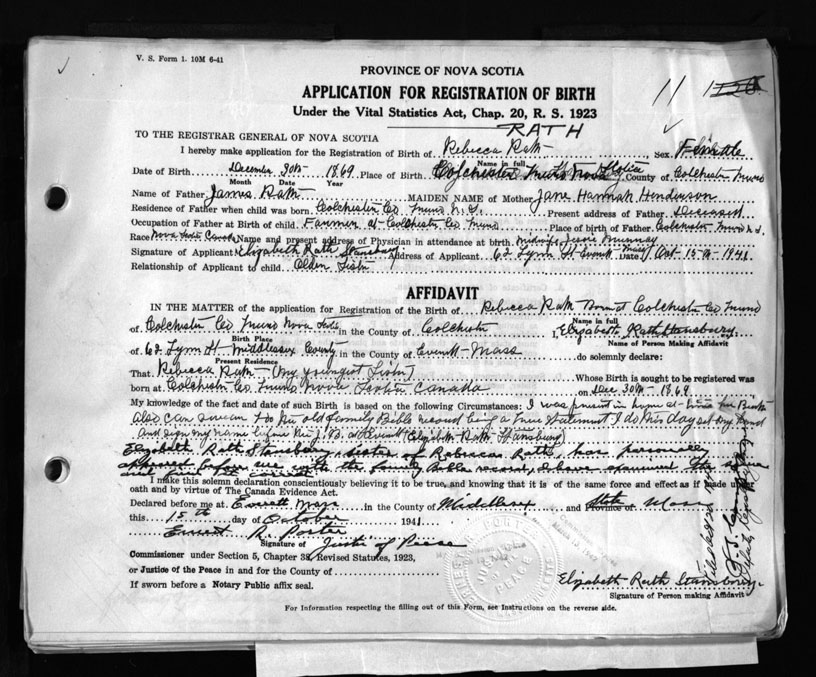 V. S. Form 1. 10M 6-41
PROVINCE OF NOVA SCOTIA
APPLICATION FOR REGISTRATION OF BIRTH
11
Under the Vital Statistics Act, Chap. 20, R. S. 1923
RATH
TO THE REGISTRAR GENERAL OF NOVA SCOTIA
I hereby make application for the Registration of Birth of Rebecca Rath Sex
Name in full
Date of Birth December 30th 1869 Place of Birth Colchester Truro Nova Scotia County of Colchester Truro
Month Date Year
Name of Father James Rath MAIDEN NAME of Mother Jane Hannah Henderson
Residence of Father when child was born Colchester Co Truro N.S. Present address of Father Deceased
Occupation of Father at Birth of child Farmer at Colchester Co Truro Place of birth of Father Colchester Truro N.S
Race Nova Scotia Canada Name and present address of Physician in attendance at birth midwife Murray
Signature of Applicant Elizabeth Rath Stansbury Address of Applicant 62 Lynn St Everett Mass Date Oct 15th 1941
Relationship of Applicant to child Older Sister
AFFIDAVIT
IN THE MATTER of the application for Registration of the Birth of Rebecca Rath Born at Colchester Co Truro
Name in full
of Colchester Co Truro Nova Scotia in the County of Colchester I, Elizabeth Rath Stansbury
Birth Place
Name of Person Making Affidavit
of 62 Lynn St Middlesex County in the County of Everett Mass do solemnly declare:
Present Residence
That Rebecca Rath (My youngest Sister) Whose Birth is sought to be registered was
born at Colchester Co Truro Nova Scotia Canada on Dec 30th 1869
My knowledge of the fact and date of such Birth is based on the following Circumstances: I was present in home at time her Birth
also can swear to the old family Bible record being a true statement I do this day set my hand
and sign my name before the J. P. at Everett (Elizabeth Rath Stansbury)
Elizabeth Rath Stansbury, sister of Rebecca Rath, has personally
appeared before me with the family Bible record,
I make this solemn declaration conscientiously believing it to be true, and knowing that it is of the same force and effect as if made under
oath and by virtue of The Canada Evidence Act.
Declared before me at Everett Mass in the County of Middlesex and Province of State Mass
this 15th day of October 1941
Ernest R. Porter
Signature of Justice of Peace
Commissioner under Section 5, Chapter 38, Revised Statutes, 1923,
or Justice of the Peace in and for the County of
If sworn before a Notary Public affix seal.
Elizabeth Rath Stansbury
Signature of Person making Affidavit
For Information respecting the filling out of this Form, see Instructions on the reverse side.
JUSTICE OF PEACE